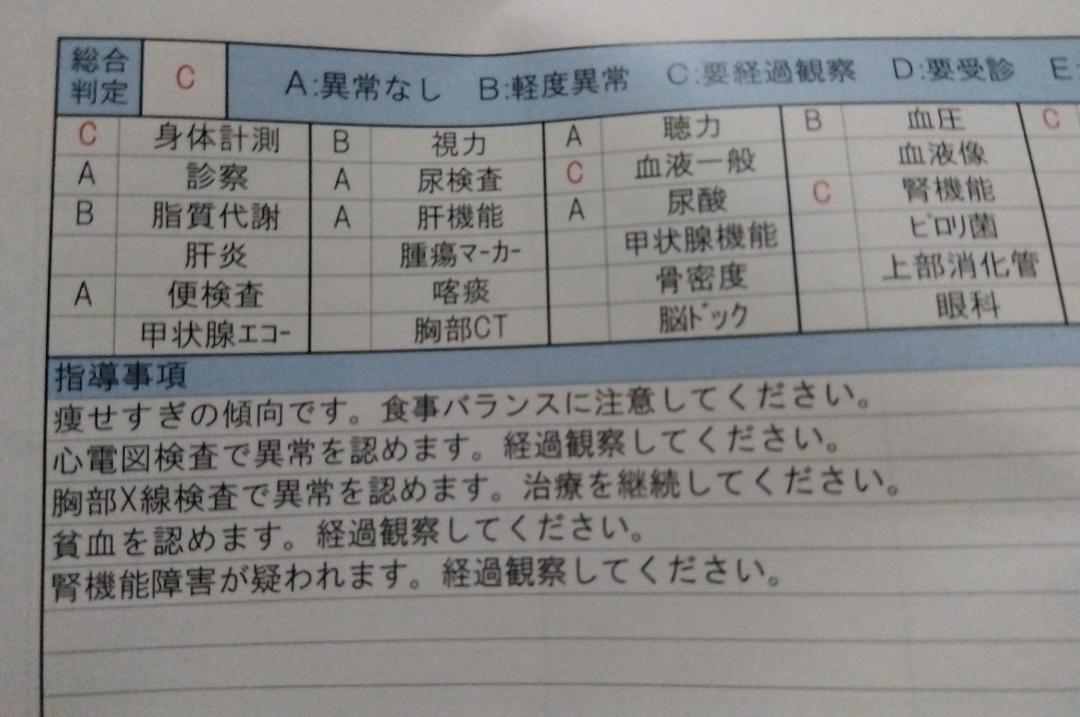 総合判定 C A:異常なし B:軽度異常 C:要経過観察 D:要受診 E
C 身体計測 B 視力 A 聴力 B 血圧 C
A 診察 A 尿検査 C 血液一般 血液像
B 脂質代謝 A 肝機能 A 尿酸 C 腎機能
肝炎 腫瘍マーカー 甲状腺機能 ピロリ菌
A 便検査 喀痰 骨密度 上部消化管
甲状腺エコー 胸部CT 脳ドック 眼科
指導事項
痩せすぎの傾向です。食事バランスに注意してください。
心電図検査で異常を認めます。経過観察してください。
胸部X線検査で異常を認めます。治療を継続してください。
貧血を認めます。経過観察してください。
腎機能障害が疑われます。経過観察してください。